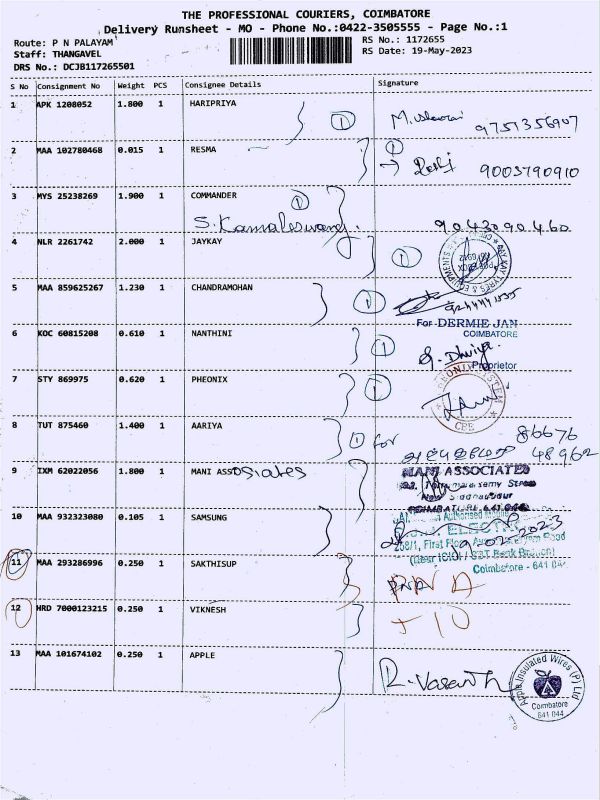 THE PROFESSIONAL COURIERS, COIMBATORE
Delivery Runsheet - MO - Phone No.:0422-3505555 - Page No.:1
Route: P N PALAYAM
RS No.: 1172655
Staff: THANGAVEL
RS Date: 19-May-2023
DRS No.: DCJB117265501
S No Consignment No Weight PCS Consignee Details Signature
1 APK 1208052 1.800 1 HARIPRIYA 1
9751356907
2 MAA 102780468 0.015 1 RESMA 1
9003790910
3 MYS 25238269 1.900 1 COMMANDER 1
S. Kamaleswari. 9043090460
4 NLR 2261742 2.000 1 JAYKAY 1
5 MAA 859625267 1.230 1 CHANDRAMOHAN 1
For DERMIE JAN
COIMBATORE
6 KOC 60815208 0.610 1 NANTHINI 1
Proprietor
7 STY 869975 0.620 1 PHEONIX 1
CBE
8 TUT 875460 1.400 1 AARIYA 1 for
86676
48962
9 IXM 62022056 1.800 1 MANI ASSOSIATES
MANI ASSOCIATES
COIMBATORE-641 044
10 MAA 932323080 0.105 1 SAMSUNG
208/1, First Floor
(Near ICICI / S&T Bank Branch)
Coimbatore - 641 044
11 MAA 293286996 0.250 1 SAKTHISUP
12 HRD 7000123215 0.250 1 VIKNESH
13 MAA 101674102 0.250 1 APPLE
R. Vasanth
Apple Insulated Wires (P) Ltd
Coimbatore
641 044